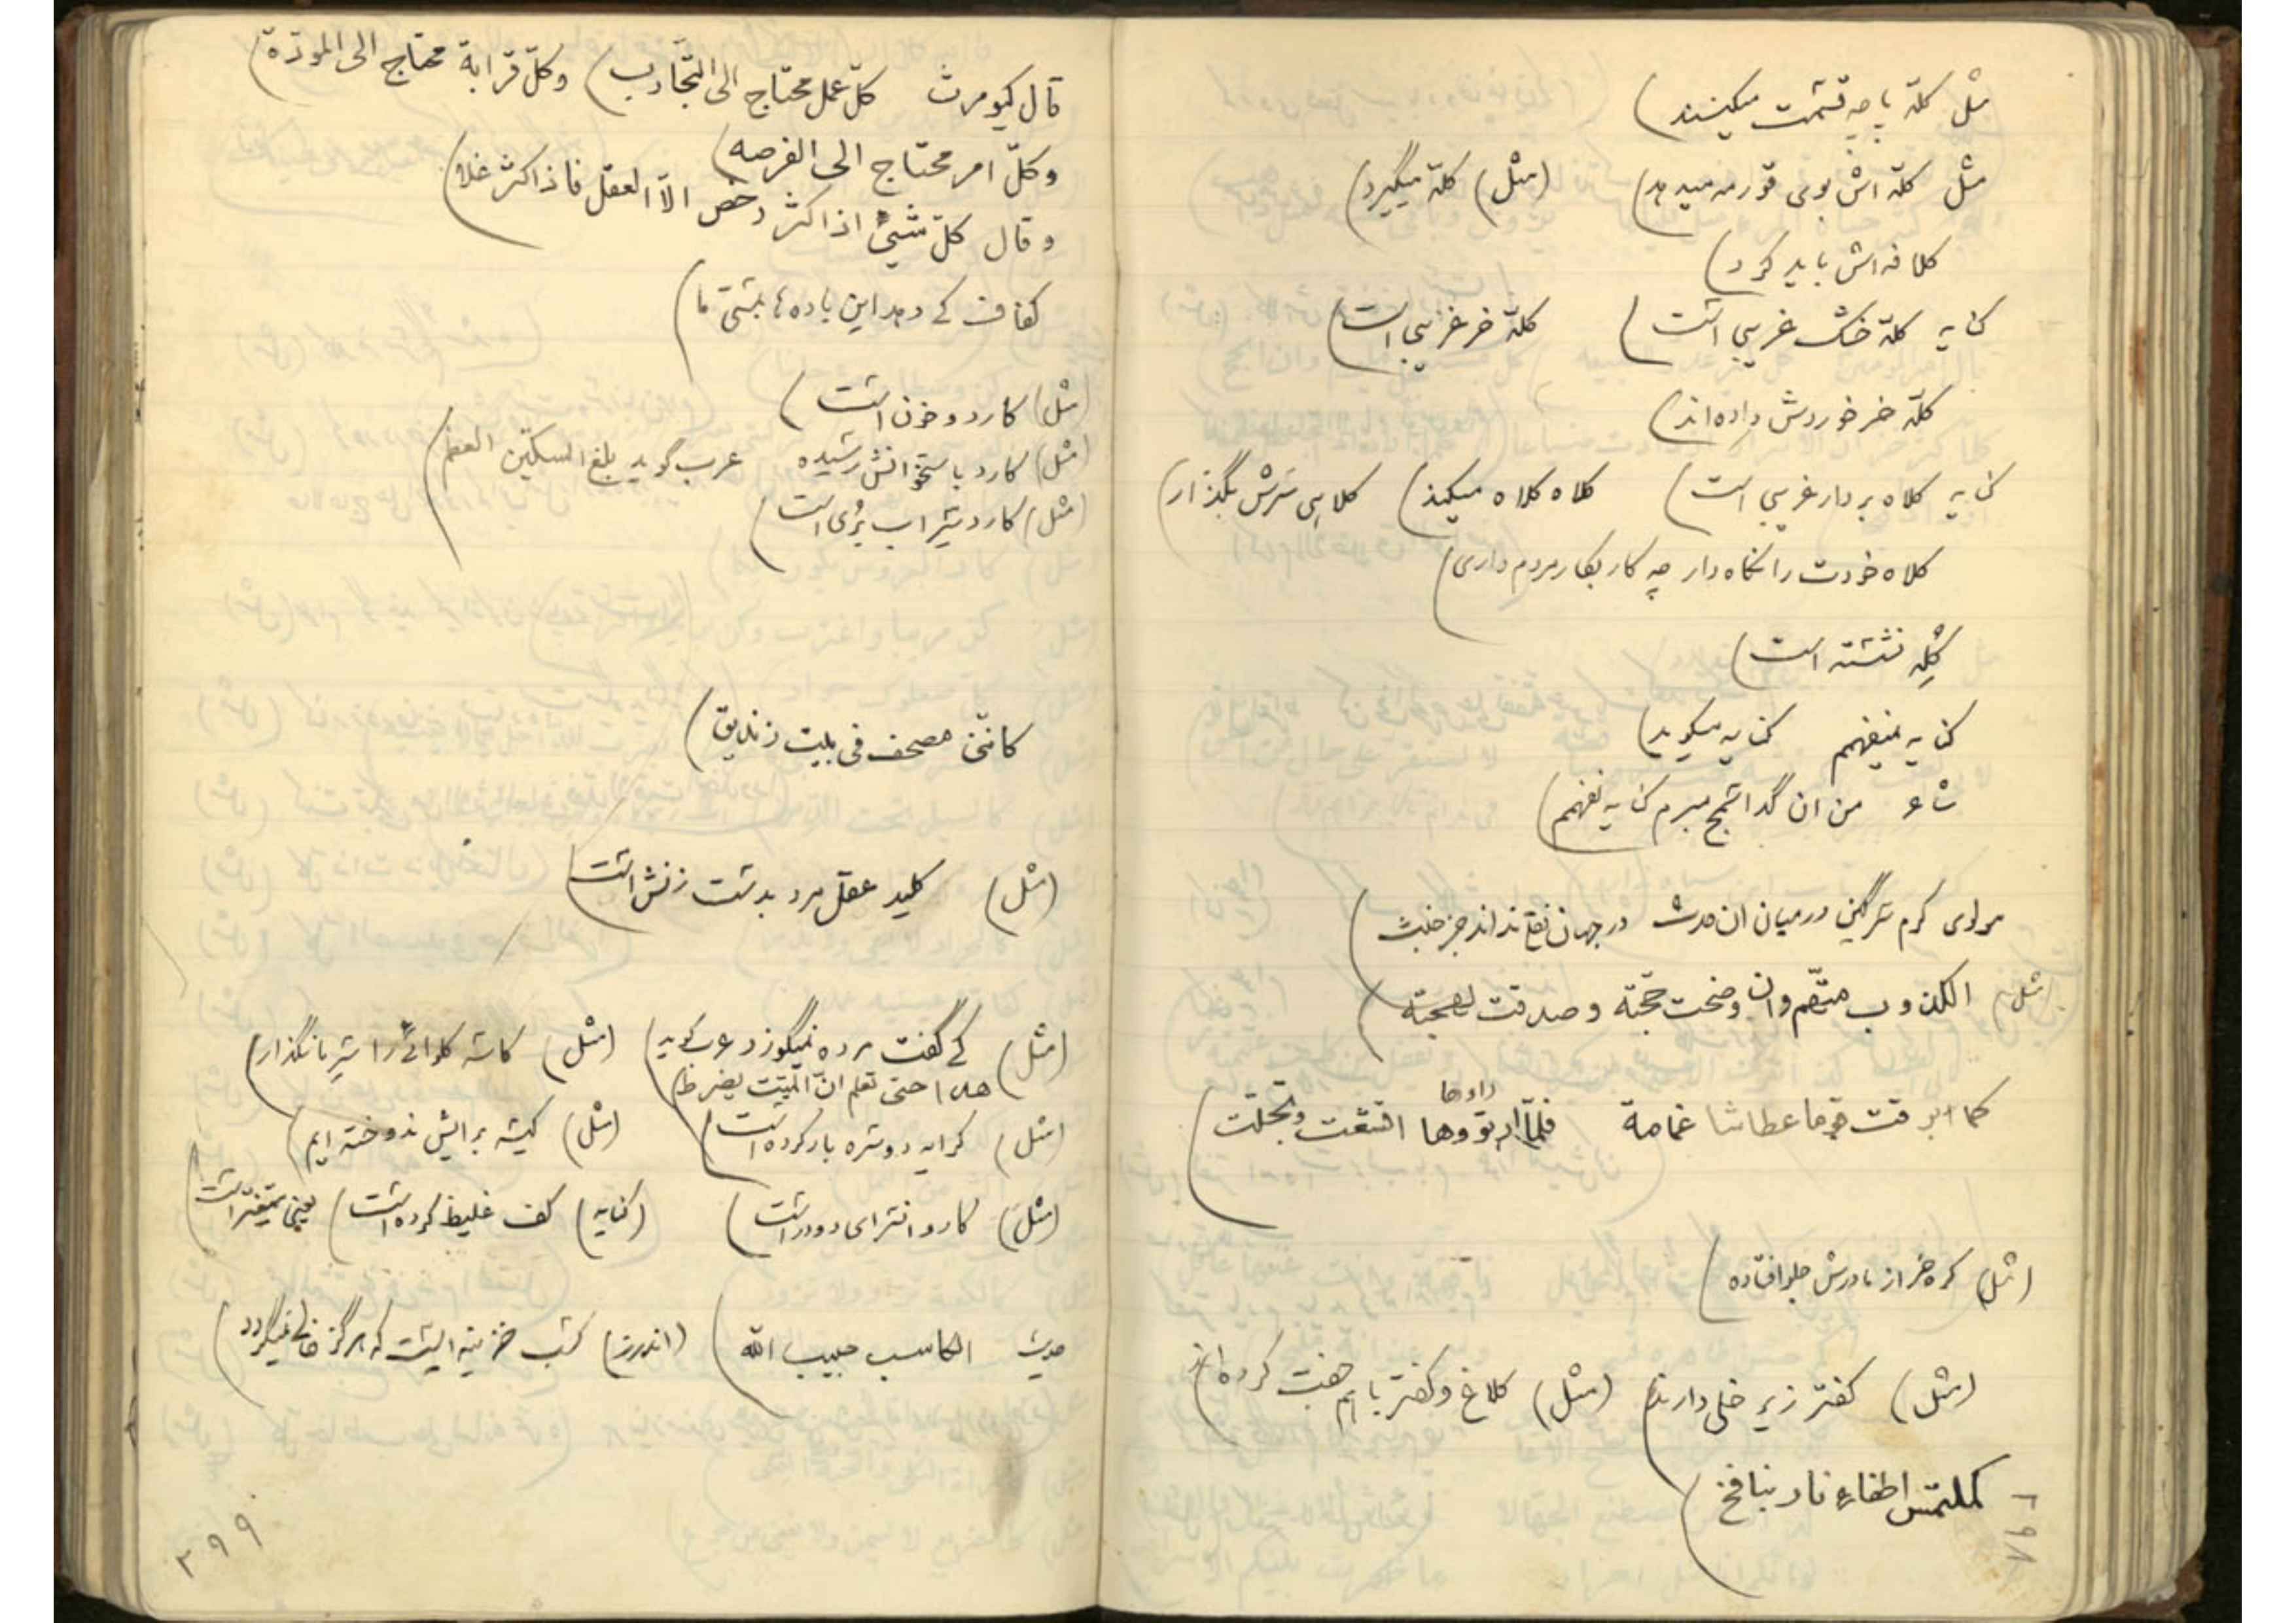 مثل کلّه پاچه قسمت میکنند)
مثل کلّه اش بوی قورمه میدهد) (مثل) کلّه میگیرد)
کلافه اش باید کرد)
کنایه کلّه خشک غریبی است) کلّه خر غریبی است)
کلّه خر خوردش داده‌اند)
کنایه کلاه بردار غریبی است) کلاه کلاه میکند) کلاهی سرش بگذار)
کلاه خودت را نگاه دار چه کار بکار مردم داری)
کلّه نشسته است)
کنایه نمیفهم کنایه میگوید)
من ان گدا سمج مبرم کنایه نفهمم)
مولوی کرم سرگین در میان ان حدث در جهان نقلی نداند جز خبث)
(مثل) الکذوب متّهم وان وضحت حجّته وصدقت لهجته)
کما ابرقت قوما عطاشا غمامة فلمّا راوها اقشعت وتجلّت)
(مثل) کره خر از مادرش جلو افتاده)
(مثل) کفتر زیر خلی دارند) (مثل) کلاغ و کفتر باهم جفت کرده‌اند)
کملتمس اطفاء نار بنافخ)
۲۹۸
قال کیومرث کلّ عمل محتاج الی التّجارب) وکلّ قرابة محتاج الی المودّة)
وکلّ امر محتاج الی الفرصه)
وقال کلّ شیئ اذا کثر رخص الّا العقل فاذا کثر غلا)
کفاف کی دهد این باده‌ها بمستی ما)
(مثل) کارد و خون است)
(مثل) کارد باستخوانش رسیده عرب گوید بلغ السکّین العظم)
(مثل) کارد شراب بُری است)
کانّنی مصحف فی بیت زندیق)
(مثل) کلید عقل مرد بدست زنش است)
(مثل) کی گفت مرده نمیگوزد عرب گوید) (مثل) کاسه کلوائی را شیر بانگذار)
هذا حتی تعلم انّ المیّت یضرط)
(مثل) کرایه دوسره بار کرده است) (مثل) کیسه برایش ندوخته ایم)
(مثل) کارد انترای دودر است) (کنایه) کف غلیظ کرده است) یعنی متغیّر است)
حدیث الکاسب حبیب الله) (اندرز) کسب خزینه ایست که هرگز خالی نمیگردد)
۲۹۹